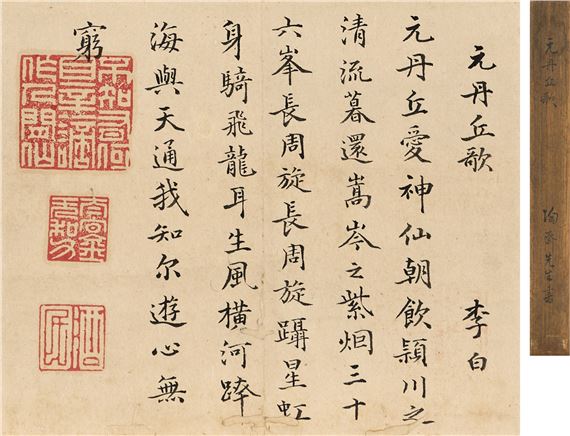 元丹丘歌 李白
元丹丘愛神仙朝飲潁川之
清流暮還嵩岑之紫烟三十
六峯長周旋長周旋躡星虹
身騎飛龍耳生風橫河跨
海與天通我知尔遊心無
窮
元丹丘歌 先生書